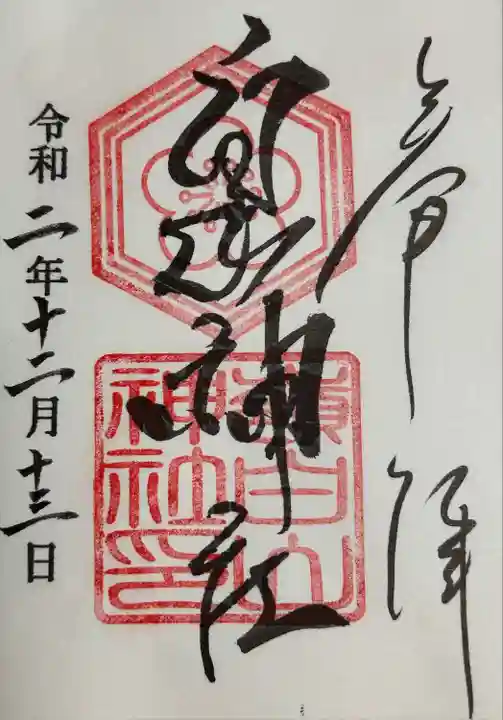 奉拝
神社
神社印
令和二年十二月十三日